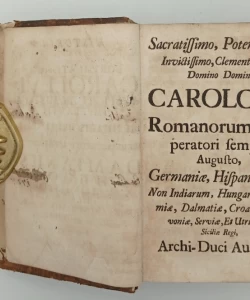 Sacratissimo, Poten
Invictissimo, Clement
Domino Domin
CAROLO
Romanorum
peratori sem
Augusto,
Germaniæ, Hispan
Non Indiarum, Hungar
miæ, Dalmatiæ, Croa
voniæ, Serviæ, Et Utri
Siciliæ Regi,
Archi-Duci Au